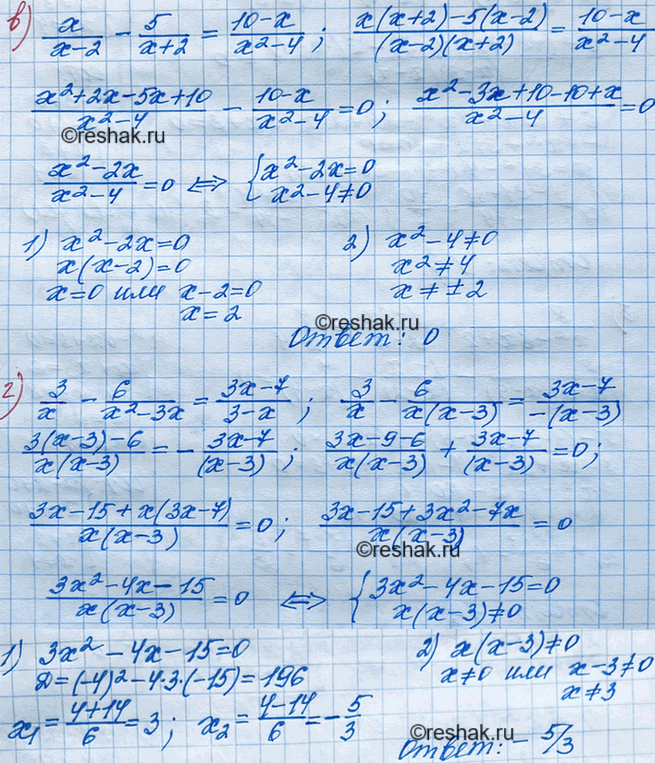 в) x/(x-2) - 5/(x+2) = (10-x)/(x²-4); (x(x+2)-5(x-2))/((x-2)(x+2)) = (10-x)/(x²-4)
(x²+2x-5x+10)/(x²-4) - (10-x)/(x²-4) = 0; (x²-3x+10-10+x)/(x²-4) = 0
©reshak.ru
(x²-2x)/(x²-4) = 0 ⇔ { x²-2x=0
x²-4≠0
1) x²-2x=0
x(x-2)=0
x=0 или x-2=0
x=2
2) x²-4≠0
x²≠4
x≠±2
©reshak.ru
Ответ: 0
г) 3/x - 6/(x²-3x) = (3x-7)/(3-x); 3/x - 6/(x(x-3)) = (3x-7)/(-(x-3))
(3(x-3)-6)/(x(x-3)) = -(3x-7)/(x-3); (3x-9-6)/(x(x-3)) + (3x-7)/(x-3) = 0;
(3x-15+x(3x-7))/(x(x-3)) = 0; (3x-15+3x²-7x)/(x(x-3)) = 0
©reshak.ru
(3x²-4x-15)/(x(x-3)) = 0 ⇔ { 3x²-4x-15=0
x(x-3)≠0
1) 3x²-4x-15=0
Д=(-4)²-4·3·(-15)=196
x₁ = (4+14)/6 = 3; x₂ = (4-14)/6 = -5/3
2) x(x-3)≠0
x≠0 или x-3≠0
x≠3
©reshak.ru
Ответ: - 5/3